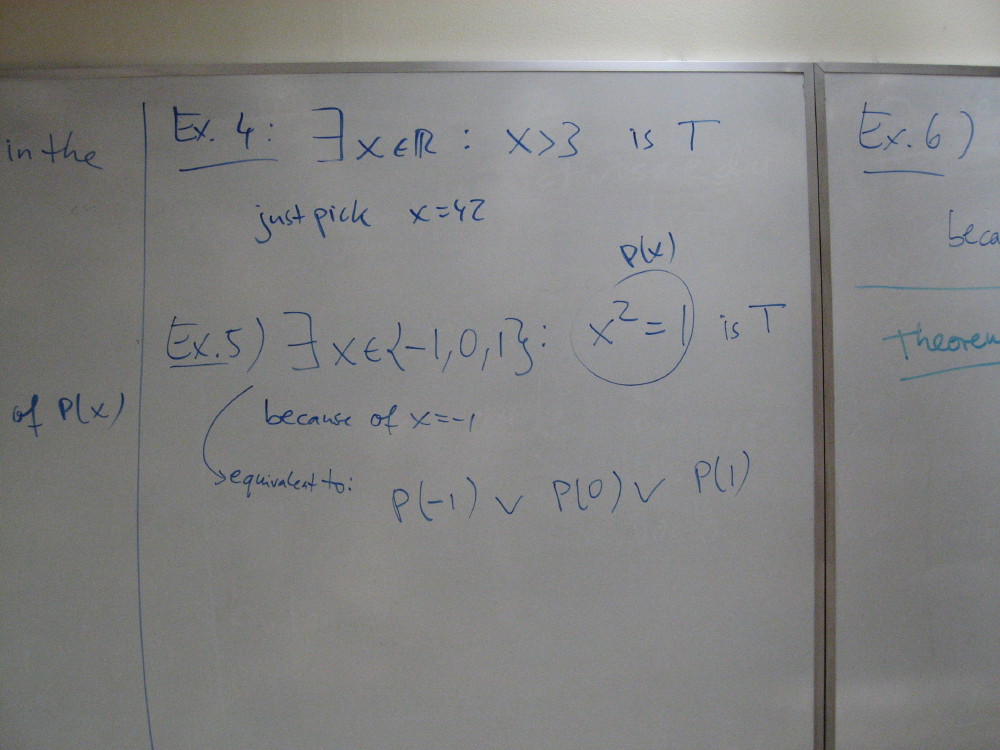 in the
of P(x)
Ex. 4: ∃x∈ℝ : x>3 is T
just pick x=42
P(x)
Ex. 5) ∃x∈{-1,0,1}: x²=1 is T
because of x=-1
equivalent to: P(-1) ∨ P(0) ∨ P(1)
Ex. 6)
beca
Theorem